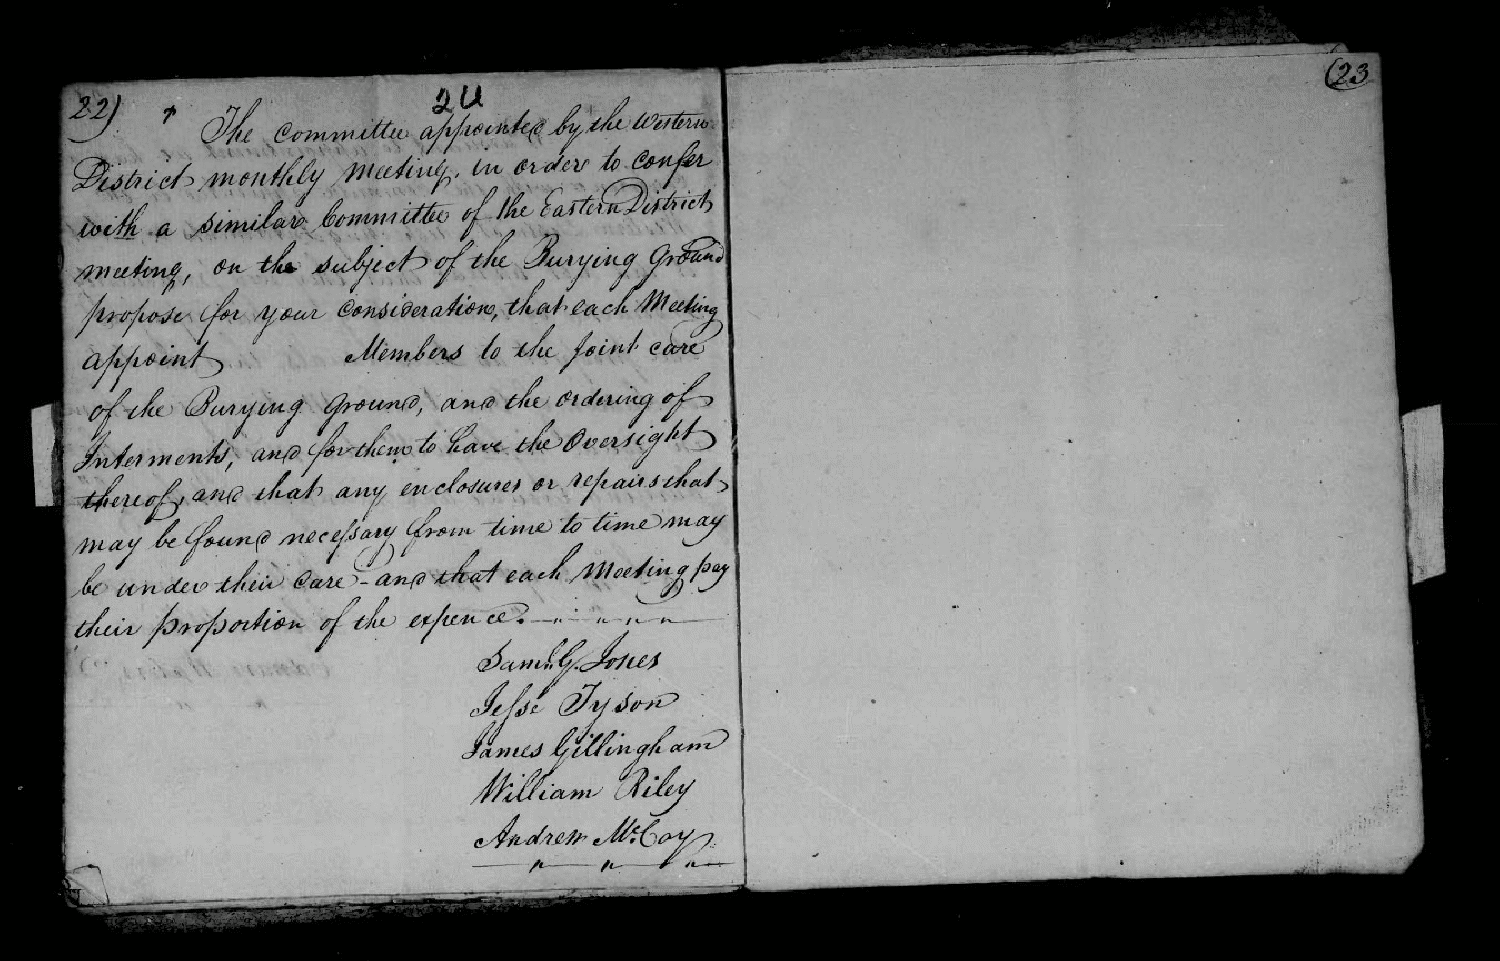 22)
24
The committee appointed by the Western
District monthly meeting. in order to confer
with a similar Committee of the Eastern District
meeting, on the subject of the Burying Ground
propose for your consideration, that each Meeting
appoint Members to the Joint care
of the Burying Ground, and the ordering of
Interments, and for them to have the Oversight
thereof, and that any enclosures or repairs that
may be found necessary from time to time may
be under their care - and that each Meeting pay
their proportion of the expence.
Saml. G. Jones
Jesse Tyson
James Gillingham
William Riley
Andrew McCoy
(23